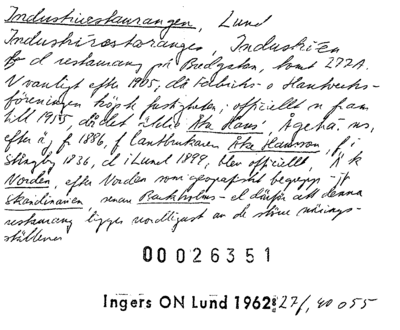 Industrirestaurangen, Lund
Industrirestaurangen, Industrien
f d restaurang på Bredgatan, tomt 272A.
V vanligt efter 1905, då Fabriks- o Hantverks-
föreningen köpt fastigheten; officiellt n fram
till 1915, då det ändr Åke Hans', Ågehäns,
efter äg f 1886, f lantbrukaren Åke Hansson, f i
1836, d i Lund 1899, blev officiellt,
Norden, efter Norden som geografiskt begrepp - jfr
Skandinavien, senare - el därför att denna
restaurang ligger nordligast av de större närings-
ställena
00026351
Ingers ON Lund 1962: 27/, 40 055